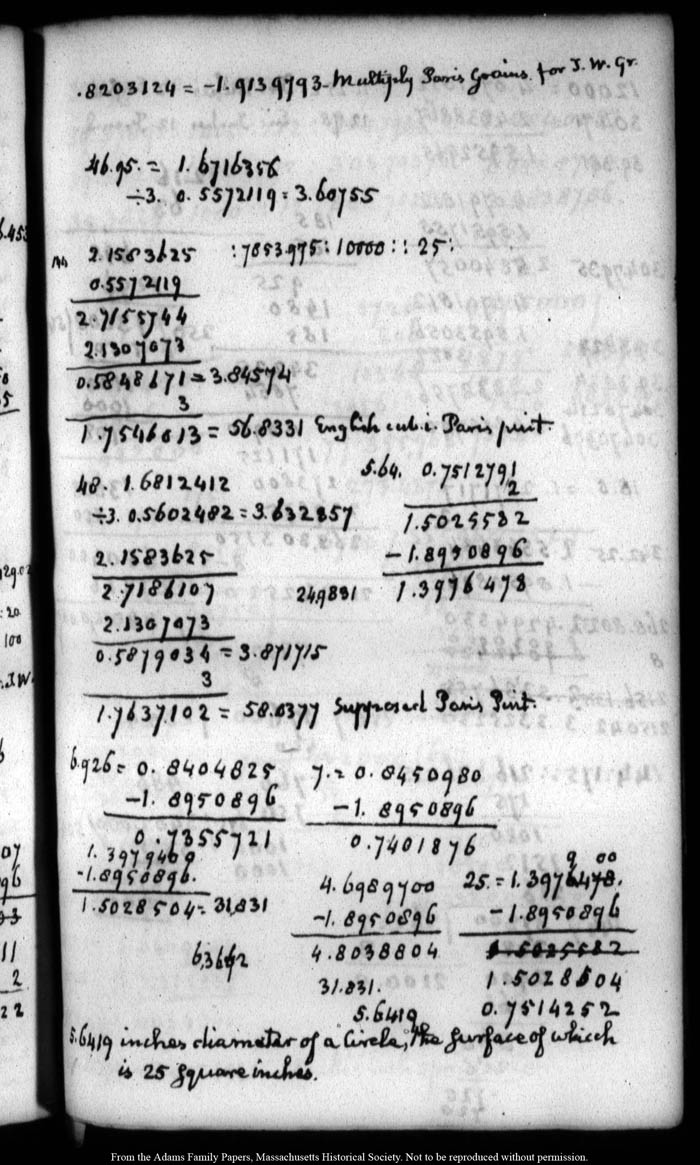 .8203124 = -1.9139793 Multiply Paris Grains. for T. W. Gr.
46.95. = 1.6716356
÷3. 0.5572119 = 3.60755
2.1583625 :7853975:10000::25:
0.5572119
2.7155744
2.1307073
0.5848671 = 3.84574
3
1.7546013 = 56.8331 English cub. i. Paris pint.
48. 1.6812412
÷3. 0.5602482 = 3.632857
2.1583625
2.7186107
2.1307073
0.5879034 = 3.871715
3
1.7637.102 = 58.0377 Supposed Paris Pint.
5.64. 0.7512791
2
1.5025582
-1.8950896
249831 1.3976478
6.926 = 0.8404825
-1.8950896
0.7355721
7. = 0.8450980
-1.8950896
0.7401876
1.3979409
-1.8950896.
1.5028504 = 31,831
4.6989700
-1.8950896
4.8038804
31.831.
5.6419
9 00
25. = 1.3976478.
-1.8950896
1.5025582
1.5028504
0.7514252
5.6419 inches diameter of a Circle, the surface of which
is 25 square inches.
29.02
:20
100
.I.W.
07
96
11
2
22
From the Adams Family Papers, Massachusetts Historical Society. Not to be reproduced without permission.